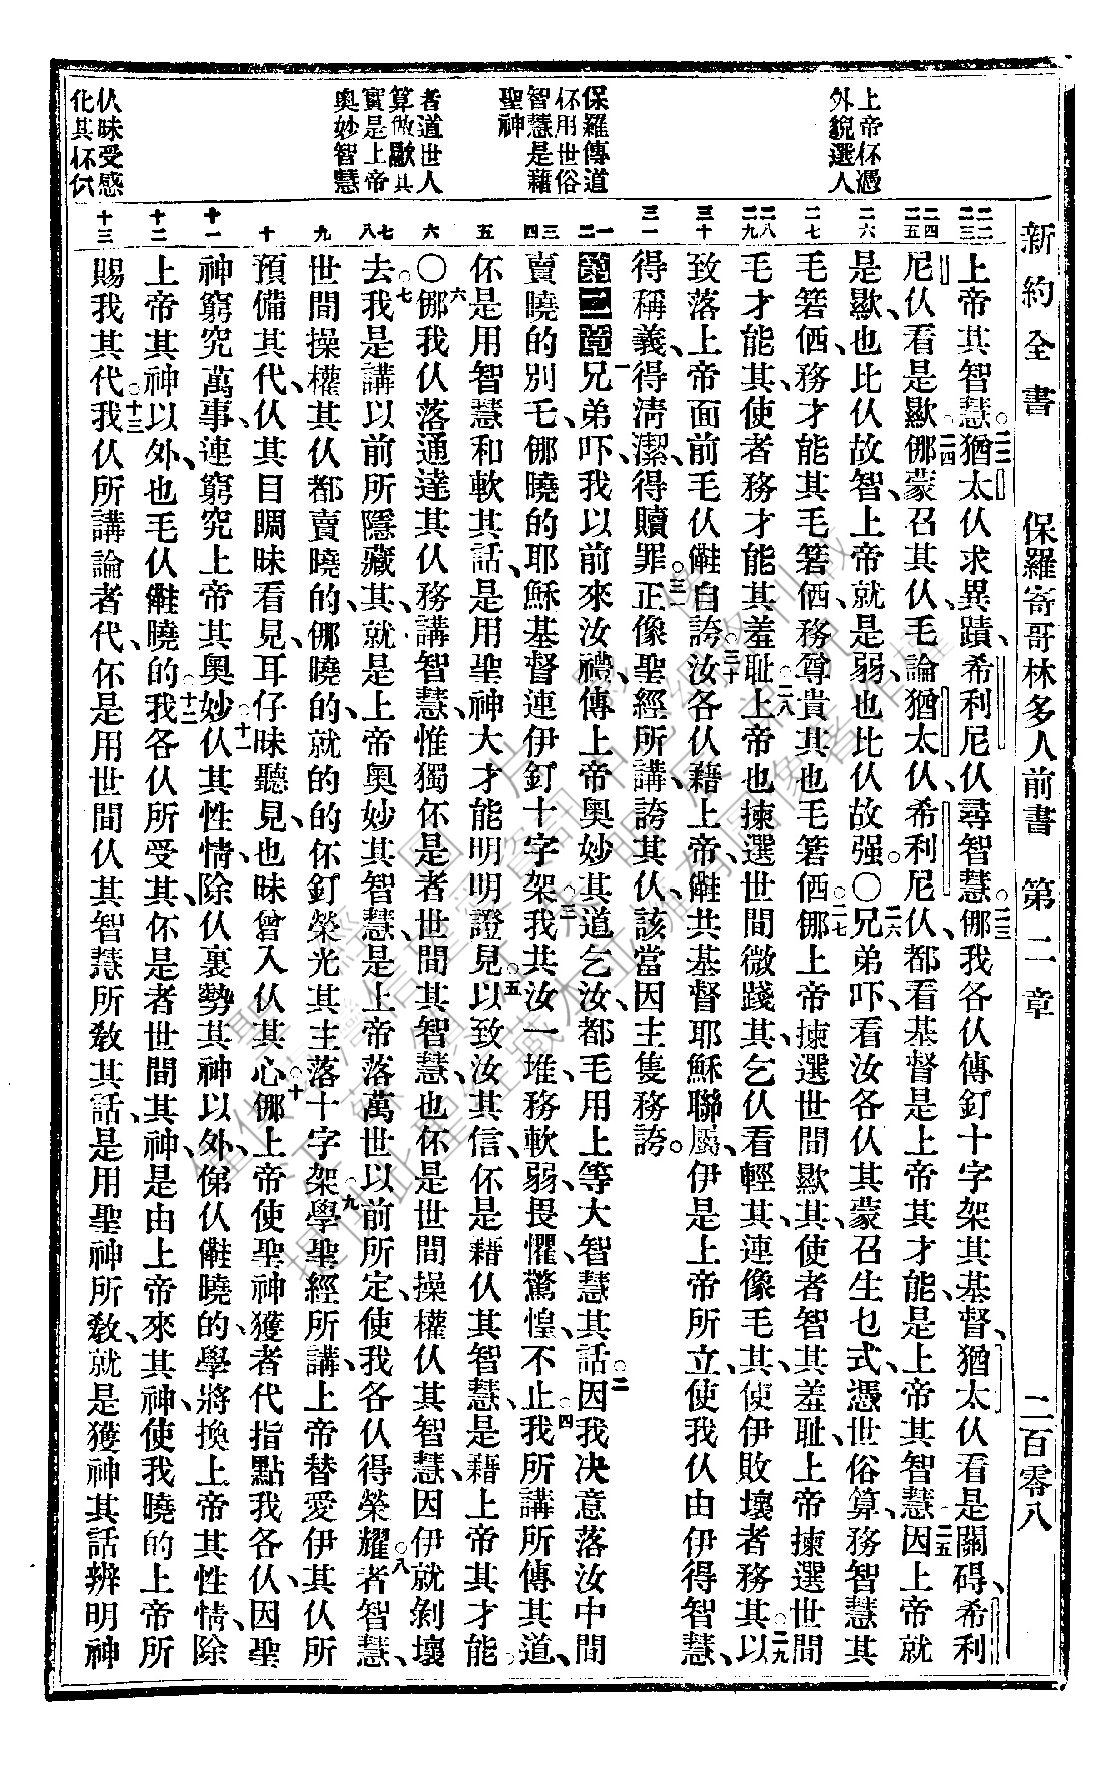 新約全書　保羅寄哥林多人前書　第二章　二百零八
上帝伓憑
外貌選人
保羅傳道
伓用世俗
智慧是藉
聖神
者道世人
算做歇其
實是上帝
奧妙智慧
仈昧受感
化其伓伩
二二 二三
二四 二五
二六
二七
二八 二九
三十
三一
一 二
三 四
五
六
七 八
九
十
十一
十二
十三
上帝其智慧○二二猶太仈求異蹟、希利尼仈尋智慧○二三㑚我各仈傳釘十字架其基督、猶太仈看是關碍、希利
尼仈看是歇○二四㑚蒙召其仈、毛論猶太仈希利尼仈、都看基督是上帝其才能、是上帝其智慧○二五因上帝就
是歇、也比仈故智、上帝就是弱、也比仈故强。○二六兄弟吓、看汝各仈其蒙召生乜式、憑世俗算、務智慧其
毛箬㑚、務才能其毛箬㑚、務尊貴其也毛箬㑚○二七㑚上帝揀選世間歇其、使者智其羞耻、上帝揀選世間
毛才能其、使者務才能其羞耻○二八上帝也揀選世間微賤其、乞仈看輕其、連像毛其、使伊敗壞者務其○二九以
致落上帝面前毛仈𫢗自誇○三十汝各仈藉上帝、𫢗共基督耶穌聯屬、伊是上帝所立、使我仈由伊得智慧、
得稱義、得淸潔、得贖罪○三一正像聖經所講、誇其仈、該當因主隻務誇。
第二章一兄弟吓、我以前來汝禮、傳上帝奧妙其道乞汝、都毛用上等大智慧其話○二因我决意落汝中間
賣曉的別乇、㑚曉的耶穌基督連伊釘十字架○三我共汝一堆、務軟弱、畏懼、驚惶、不止○四我所講所傳其道、
伓是用智慧和軟其話、是用聖神大才能明明證見○五以致汝其信、伓是藉仈其智慧、是藉上帝其才能
○六㑚我仈落通達其仈、務講智慧、惟獨伓是者世間其智慧、也伓是世間操權仈其智慧、因伊就剝壞
去○七我是講以前所隱藏其、就是上帝奧妙其智慧、是上帝落萬世以前所定、使我各仈得榮耀○八者智慧、
世間操權其仈都賣曉的、㑚曉的、就的的伓釘榮光其主落十字架○九學聖經所講、上帝替愛伊其仈所
預備其代、仈其目睭昧看見、耳仔昧聽見、也昧曾入仈其心○十㑚上帝使聖神獲者代指點我各仈、因聖
神窮究萬事、連窮究上帝其奧妙○十一仈其性情、除仈裏勢其神以外、俤仈𫢗曉的、學將換上帝其性情、除
上帝其神以外、也毛仈𫢗曉的○十二我各仈所受其、伓是者世間其神、是由上帝來其神、使我曉的上帝所
賜我其代○十三我仈所講論者代、伓是用世間仈其智慧所敎其話、是用聖神所敎、就是獲神其話辨明神